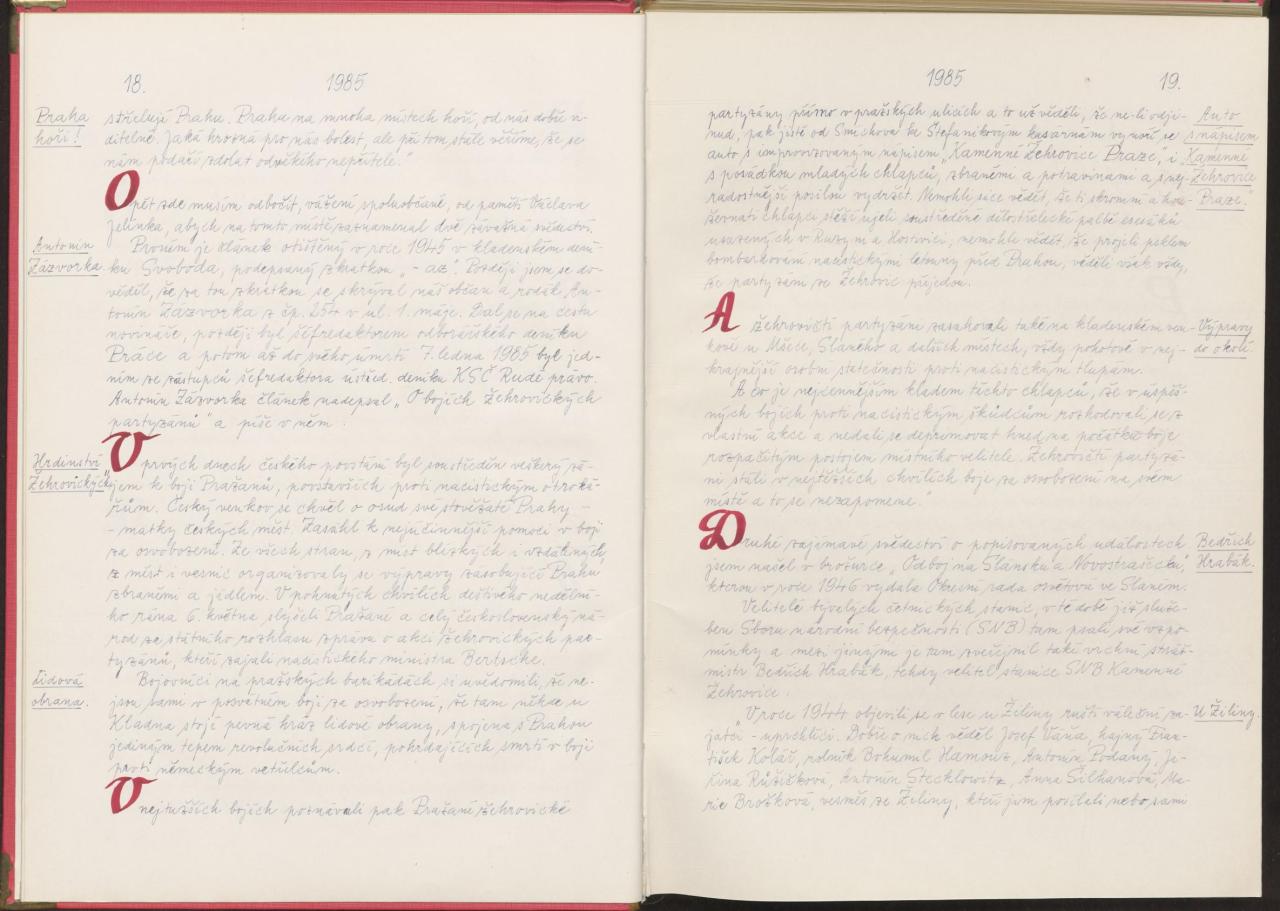 18.
1985
Praha
hoří!
střelují Prahu. Praha na mnoha místech hoří, od nás dobře vi-
ditelně. Jaká hrozná pro nás bolest, ale při tom stále věříme, že se
nám podaří zdolat odvěkého nepřítele."
Opět zde musím odbočit, vážení spoluobčané, od pamětí Václava
Jelínka, abych na tomto místě zaznamenal dvě závažná svědectví.
Antonín
Zázvorka.
Prvním je článek otištěný v roce 1945 v kladenském dení-
ku Svoboda, podepsaný zkratkou „- az". Později jsem se do-
věděl, že za tou zkratkou se skrýval náš občan a rodák An-
tonín Zázvorka z čp. 254 v ul. 1. máje. Dal se na cestu
novináře, později byl šéfredaktorem odborářského deníku
Práce a potom až do svého úmrtí 7. ledna 1985 byl jed-
ním ze zástupců šéfredaktora ústřed. deníku KSČ Rudé právo.
Antonín Zázvorka článek nadepsal „O bojích žehrovických
partyzánů" a píše v něm:
Hrdinství
Žehrovických.
„V prvých dnech českého povstání byl soustředěn veškerý zá-
jem k boji Pražanů, povstavších proti nacistickým otroká-
řům. Český venkov se chvěl o osud své stověžaté Prahy -
- matky českých měst. Zasáhl k nejúčinnější pomoci v boji
za osvobození. Ze všech stran, z míst blízkých i vzdálených,
z měst i vesnic organizovaly se výpravy zásobující Prahu
zbraněmi a jídlem. V pohnutých chvílích deštivého neděl-
ho rána 6. května slyšeli Pražané a celý československý ná-
rod ze státního rozhlasu zprávu o akci žehrovických par-
tyzánů, kteří zajali nacistického ministra Bertsche.
Lidová
obrana.
Bojovníci na pražských barikádách si uvědomili, že ne-
jsou sami v posvátném boji za osvobození, že tam někde u
Kladna stojí pevná hráz lidové obrany, spojena s Prahou
jediným tepem revolučních srdcí, pohrdajících smrtí v boji
proti německým vetřelcům.
V nejtužších bojích poznávali pak Pražané žehrovické
1985
19.
partyzány přímo v pražských ulicích a to už věděli, že ne-li odji-
nud, pak jistě od Smíchova ke Štefánikovým kasárnám vynoří se
auto s improvizovaným nápisem „Kamenné Žehrovice Praze", i
s posádkou mladých chlapců, zbraněmi a potravinami a s nej-
radostnější posilou vydržet. Nemohli sice vědět, že ti skromní a hou-
ževnatí chlapci stěží ujeli soustředěné dělostřelecké palbě esesáků
usazených v Ruzyni a Hostivici, nemohli vědět, že projeli peklem
bombardování nacistickými letouny před Prahou, věděli však vždy,
že partyzáni ze Žehrovic přijedou.
Auto
s nápisem
„Kamenné
Žehrovice
Praze."
A žehrovičtí partyzáni zasahovali také na kladenském ven-
kově u Mšece, Slaného a dalších místech, vždy pohotově v nej-
krajnější osobní statečnosti proti nacistickým tlupám.
Výpravy
do okolí.
A co je nejcennějším kladem těchto chlapců, že v úspěš-
ných bojích proti nacistickým škůdcům rozhodovali se z
vlastní akce a nedali se deprimovat hned na počátku boje
rozpačitým postojem místního velitele. Žehrovičtí partyzá-
ni stáli v nejtěžších chvílích boje za osvobození na svém
místě a to se nezapomene."
Druhé zajímavé svědectví o popisovaných událostech
jsem našel v brožurce „Odboj na Slánsku a Novostrašecku",
kterou v roce 1946 vydala Okresní rada osvětová ve Slaném.
Bedřich
Hrabák.
Velitelé bývalých četnických stanic, v té době již služe-
ben Sboru národní bezpečnosti (SNB) tam psali své vzpo-
mínky a mezi jinými je tam zveřejnil také vrchní stráž-
mistr Bedřich Hrabák, tehdy velitel stanice SNB Kamenné
Žehrovice.
„V roce 1944 objevili se v lese u Žiliny ruští váleční za-
jatci - uprchlíci. Dobře o nich věděl Josef Váňa, hajný Fran-
tišek Kolář, rolník Bohumil Hamouz, Antonín Podaný, Ji-
řina Růžičková, Antonín Stecklowitz, Anna Silhanová, Ma-
rie Brožková, vesměs ze Žiliny, kteří jim posílali nebo sami
U Žiliny.